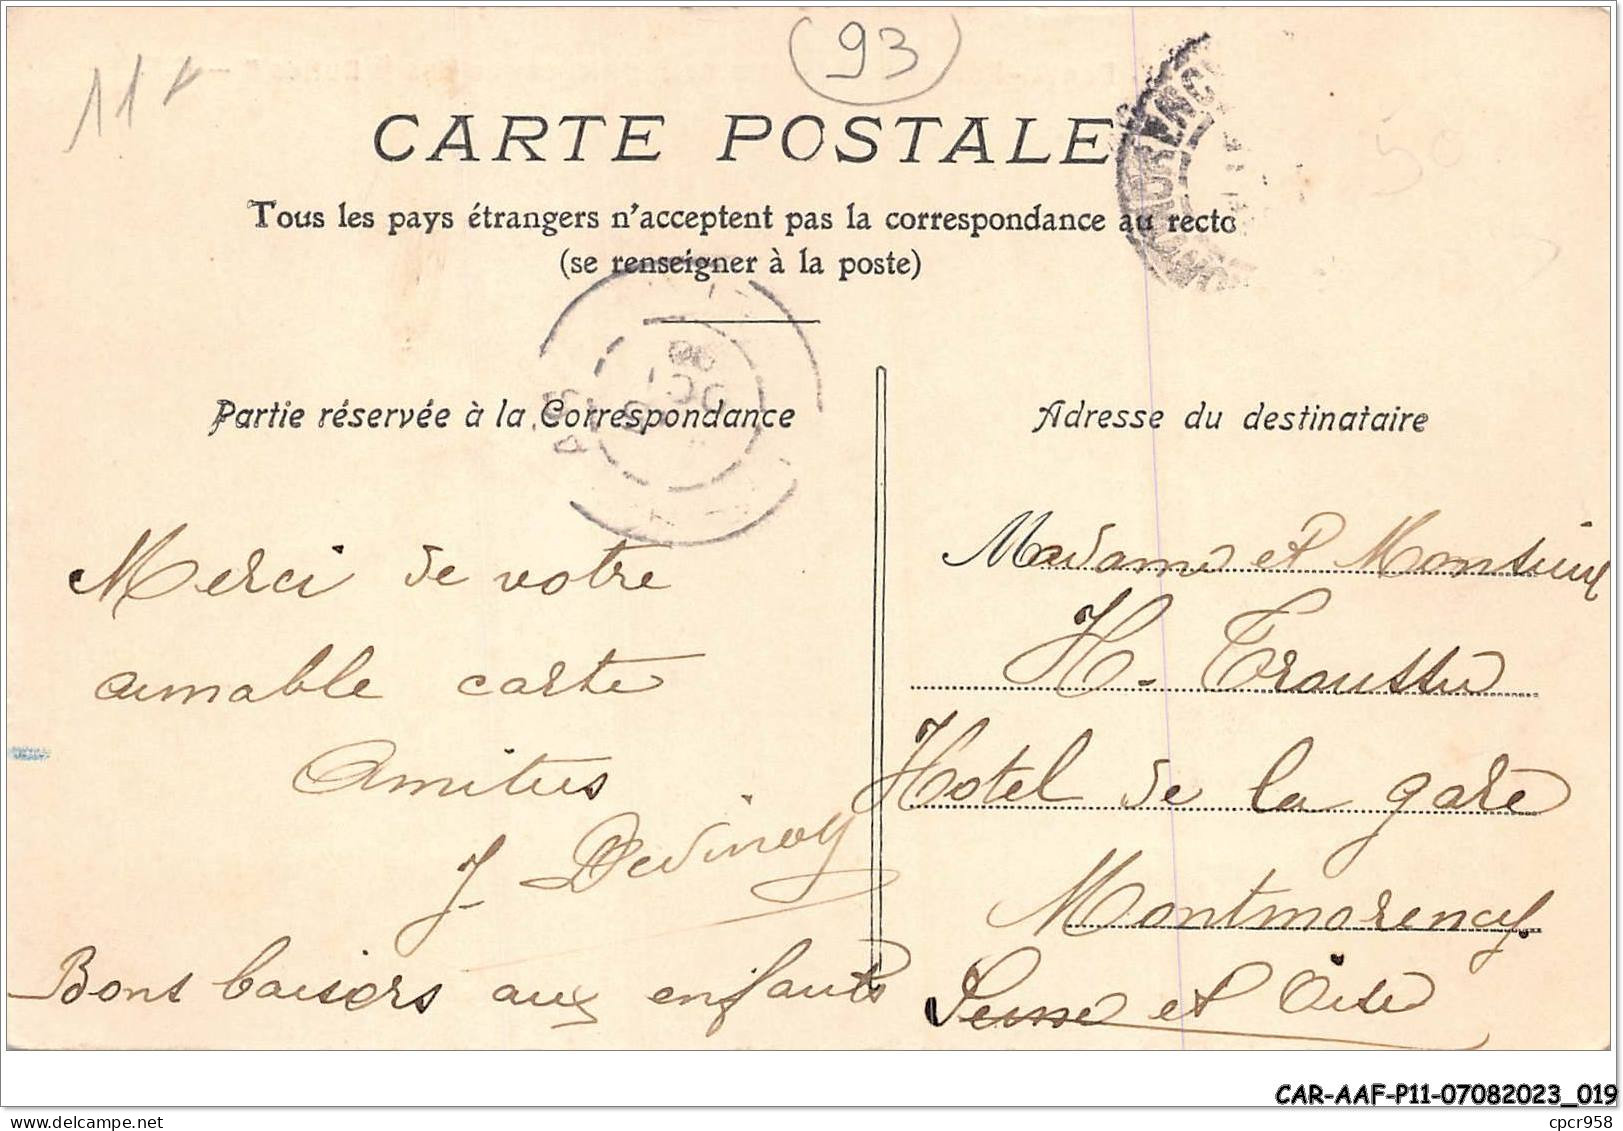 11 F
93
50
CARTE POSTALE
Tous les pays étrangers n'acceptent pas la correspondance au recto
(se renseigner à la poste)
Partie réservée à la Correspondance
Merci de votre
aimable carte
Amitiés
J. Devinoy
Bons baisers aux enfants
Adresse du destinataire
Madame et Monsieur
H. Troussu
Hotel de la gare
Montmorency
Seine et Oise
CAR-AAF-P11-07082023_019
cpcr958